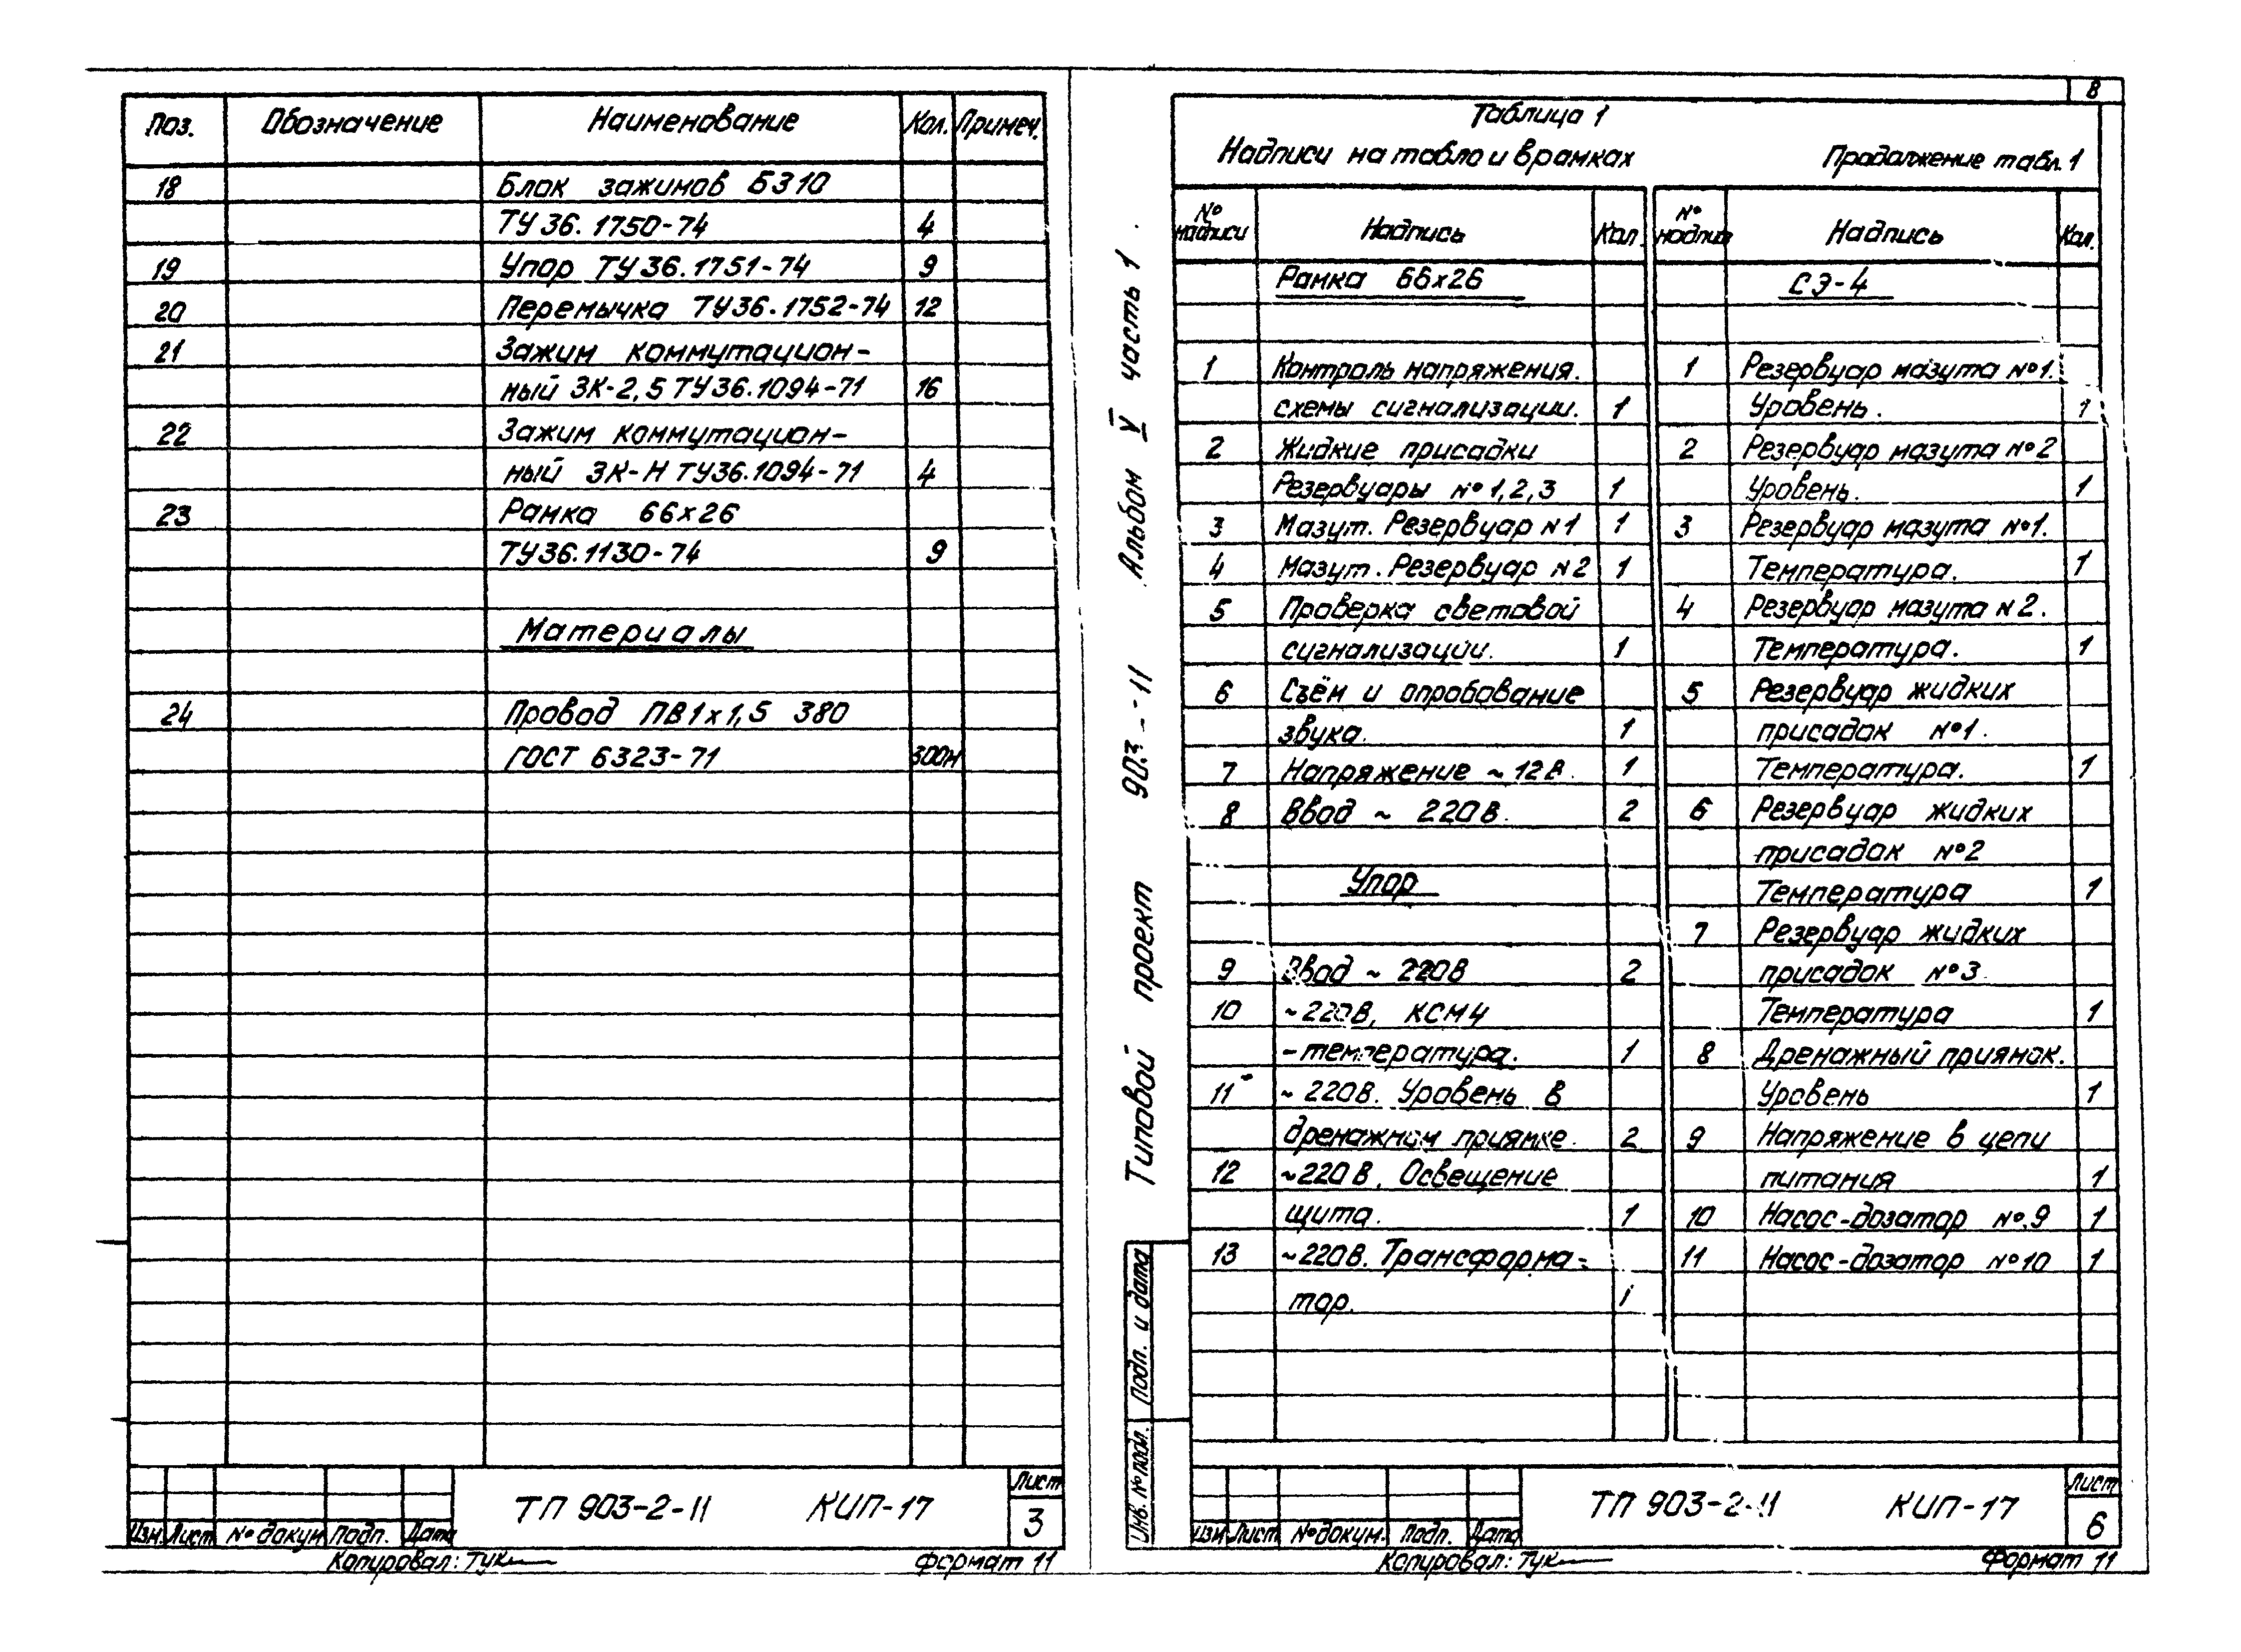 Поз. Обозначение Наименование Кол. Примеч.
18 Блок зажимов БЗ10
ТУ 36.1750-74 4
19 Упор ТУ 36.1751-74 9
20 Перемычка ТУ36.1752-74 12
21 Зажим коммутацион-
ный ЗК-2,5 ТУ36.1094-71 16
22 Зажим коммутацион-
ный ЗК-Н ТУ36.1094-71 4
23 Рамка 66х26
ТУ36.1130-74 9
Материалы
24 Провод ПВ1х1,5 380
ГОСТ 6323-71 300м
Изм. Лист № докум. Подп. Дата
ТП 903-2-11 КИП-17
Лист
3
Копировал: Тук
Формат 11
Типовой проект 903 - -11 Альбом V часть 1
Подп. и дата
Инв. № подл.
8
Таблица 1
Надписи на табло и в рамках
№ надписи Надпись Кол.
Рамка 66х26
1 Контроль напряжения.
схемы сигнализации. 1
2 Жидкие присадки
Резервуары № 1,2,3 1
3 Мазут. Резервуар N1 1
4 Мазут. Резервуар N2 1
5 Проверка световой
сигнализации. 1
6 Съём и опробование
звука. 1
7 Напряжение ~12В. 1
8 Ввод ~ 220В. 2
Упор
9 Ввод ~ 220В 2
10 ~220В, КСМ4
-температура. 1
11 ~ 220В. Уровень в
дренажном приямке. 2
12 ~220В. Освещение
щита. 1
13 ~220В. Трансформа-
тор. 1
Продолжение табл. 1
№ надписи Надпись Кол.
СЭ-4
1 Резервуар мазута №1.
Уровень. 1
2 Резервуар мазута №2
Уровень. 1
3 Резервуар мазута №1.
Температура. 1
4 Резервуар мазута N2.
Температура. 1
5 Резервуар жидких
присадок №1.
Температура. 1
6 Резервуар жидких
присадок №2
Температура 1
7 Резервуар жидких
присадок №3.
Температура 1
8 Дренажный приямок.
Уровень 1
9 Напряжение в цепи
питания 1
10 Насос-дозатор №.9 1
11 Насос-дозатор №10 1
Изм Лист № докум. Подп. Дата
ТП 903-2-11 КИП-17
Лист
6
Копировал: Тук
Формат 11